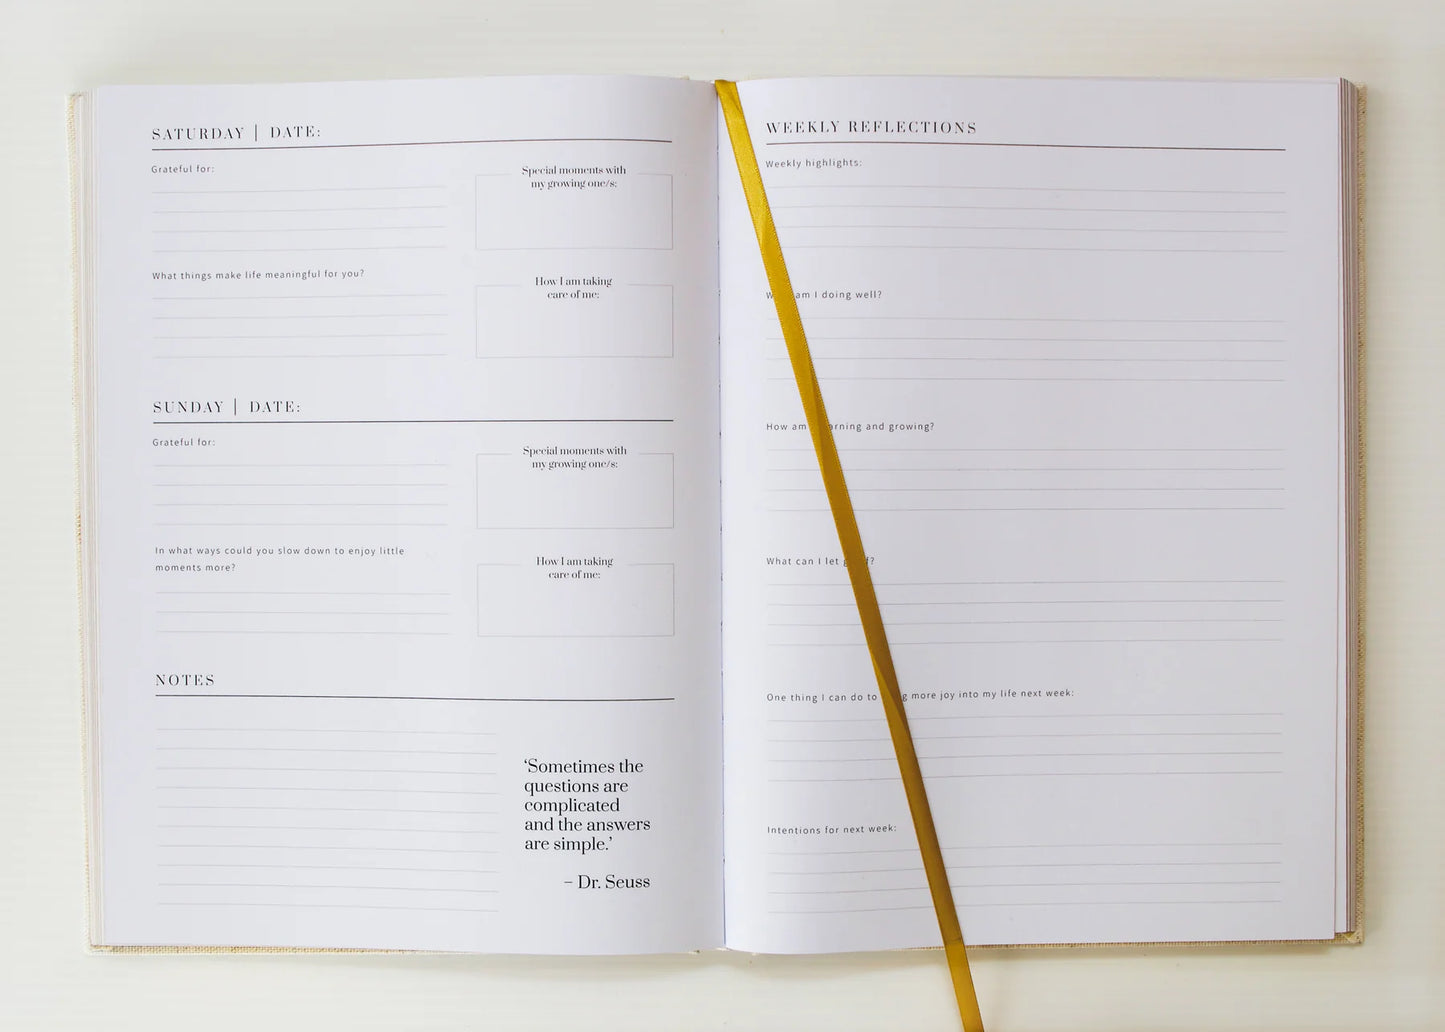 SATURDAY | DATE:
Grateful for:
Special moments with
my growing one/s:
What things make life meaningful for you?
How I am taking
care of me:
SUNDAY | DATE:
Grateful for:
Special moments with
my growing one/s:
In what ways could you slow down to enjoy little
moments more?
How I am taking
care of me:
NOTES
‘Sometimes the
questions are
complicated
and the answers
are simple.’
– Dr. Seuss
WEEKLY REFLECTIONS
Weekly highlights:
am I doing well?
How am and growing?
What can I let
One thing I can do to more joy into my life next week:
Intentions for next week: